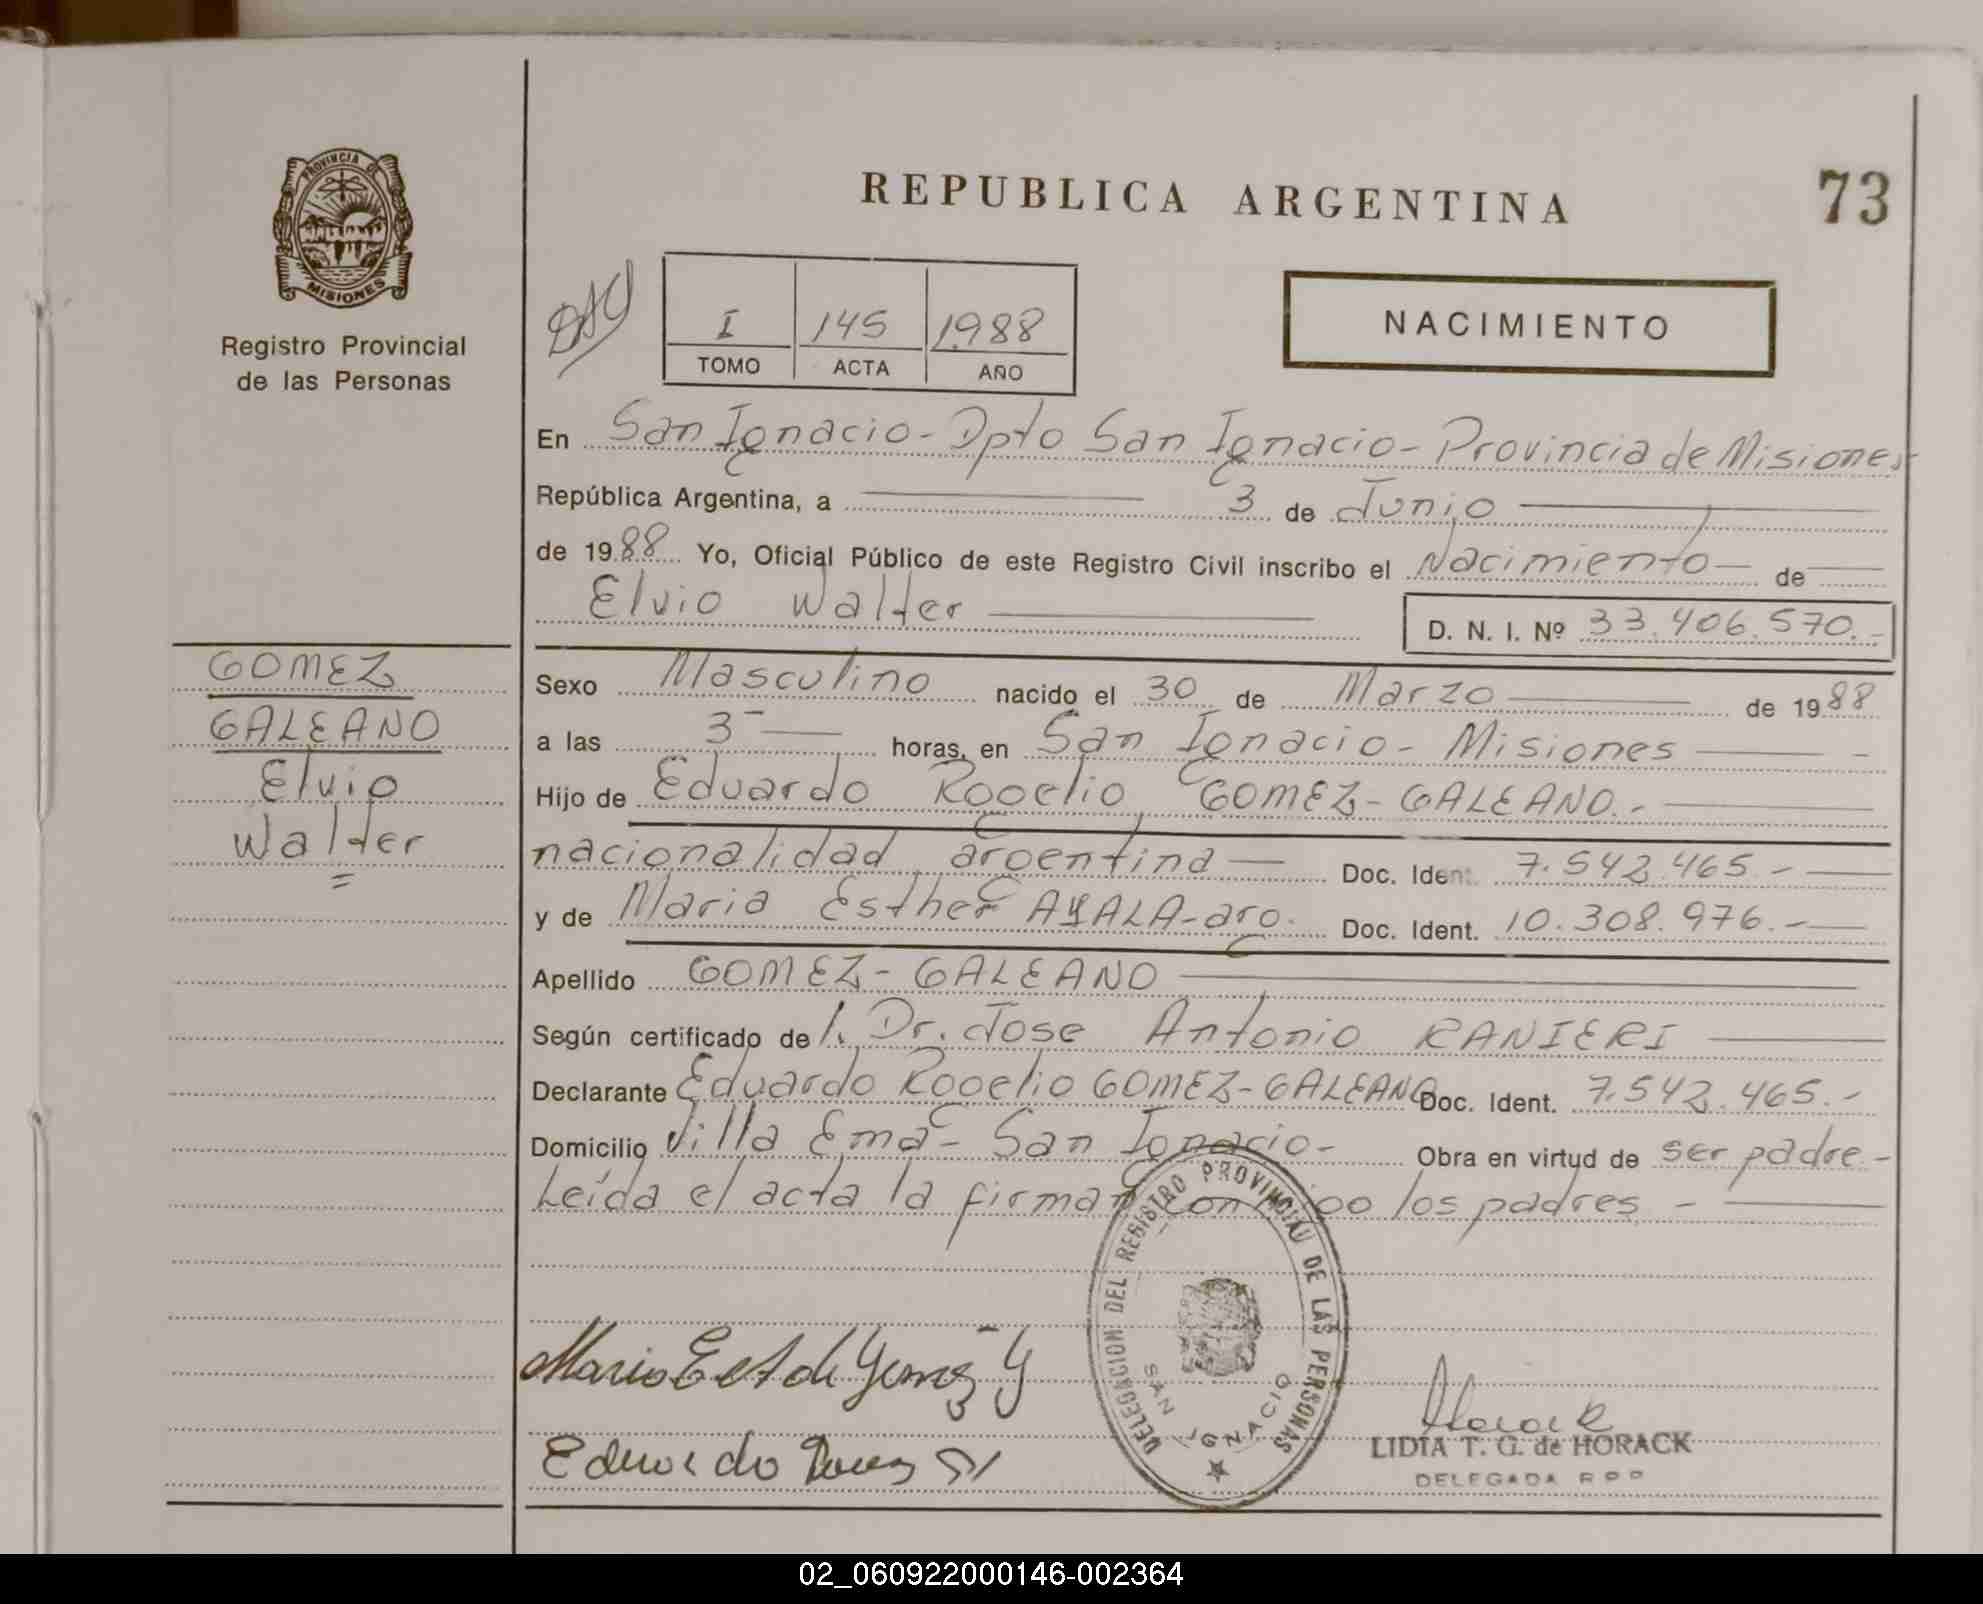 PROVINCIA DE
MISIONES
Registro Provincial
de las Personas
GOMEZ
GALEANO
Elvio
Walter
=
REPUBLICA ARGENTINA
73
I 145 1.988
TOMO ACTA AÑO
NACIMIENTO
En San Ignacio - Dpto San Ignacio - Provincia de Misiones
República Argentina, a 3 de Junio
de 1988 Yo, Oficial Público de este Registro Civil inscribo el Nacimiento de
Elvio Walter D. N. I. Nº 33.406.570.-
Sexo Masculino nacido el 30 de Marzo de 1988
a las 3 horas, en San Ignacio - Misiones
Hijo de Eduardo Rogelio GOMEZ - GALEANO.-
nacionalidad argentina Doc. Ident. 7.542.465.-
y de Maria Esther AYALA - arg. Doc. Ident. 10.308.976.-
Apellido GOMEZ - GALEANO
Según certificado de l. Dr. Jose Antonio RANIERI
Declarante Eduardo Rogelio GOMEZ - GALEANO Doc. Ident. 7.542.465.-
Domicilio Villa Ema - San Ignacio - Obra en virtud de ser padre.-
Leída el acta la firman conmigo los padres -
DELEGACION DEL REGISTRO PROVINCIAL DE LAS PERSONAS
SAN IGNACIO
Horack
LIDIA T. G. de HORACK
DELEGADA R P P
Eduardo
02_060922000146-002364